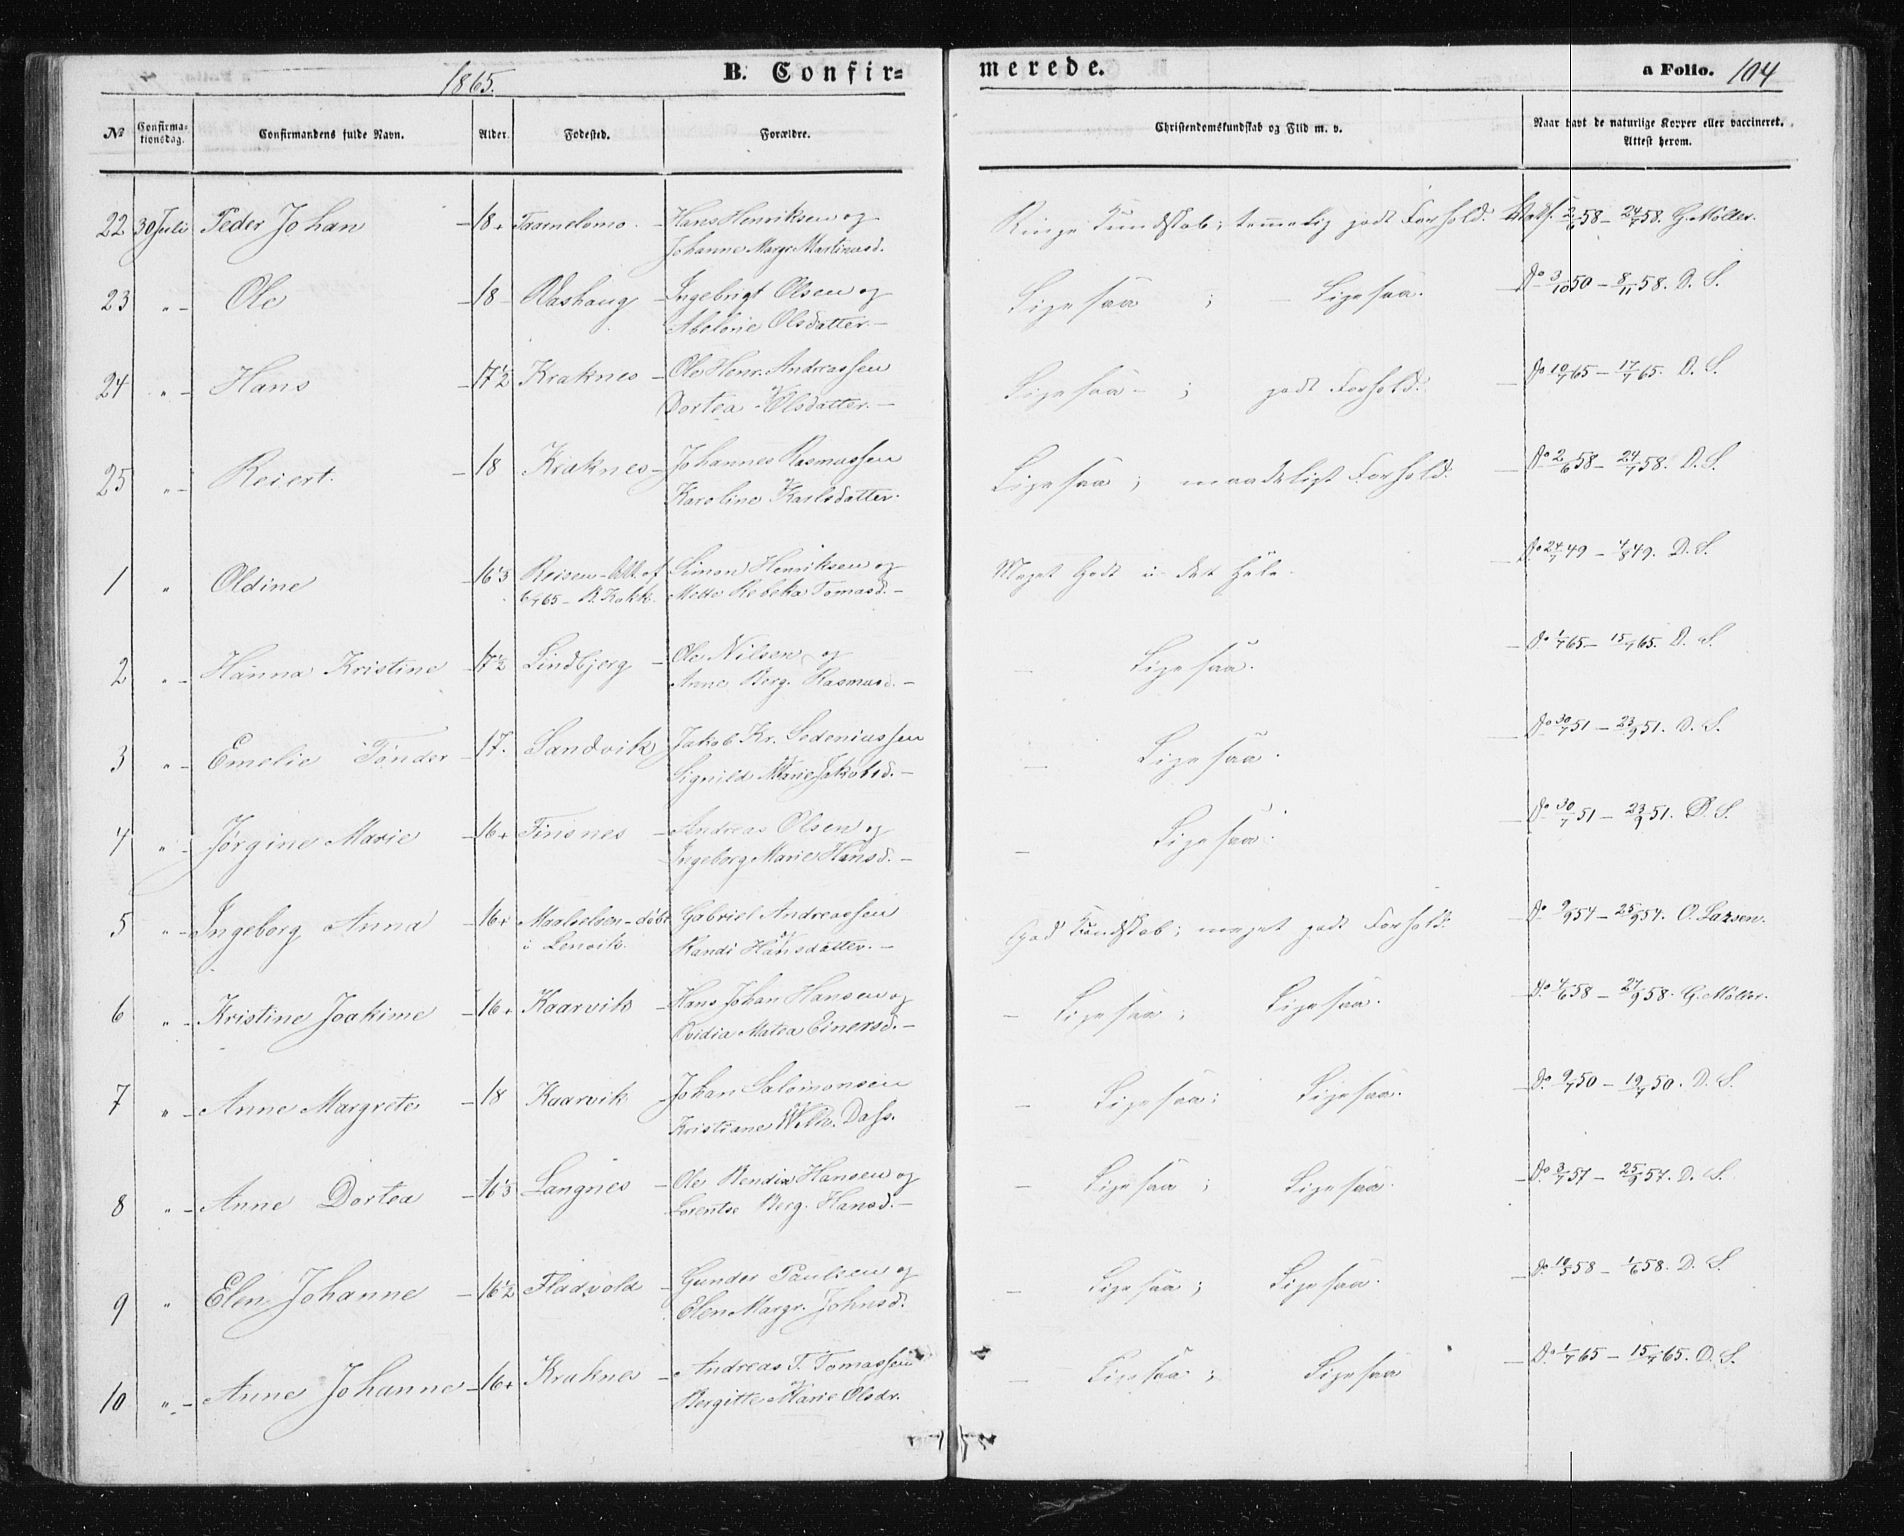 1865.
B. Confir=
merede.
a Folio. 104
No
Confirma-
tionsdag.
Confirmandens fulde Navn.
Alder.
Fødested.
Forældre.
Christendomskundskab og Flid m. v.
Naar havt de naturlige Kopper eller vaccineret.
Attest herom.
22 30 Juli Peder Johan - 18+ Hans Henriksen og Ringe Kundskab; temmelig godt Forhold. 2/6 58 - 24/7 58. G. Møller.
Johanne Margr. Martinusd.
23 " - Ole - 18 - Vashaug - Ingebrigt Olsen og Ligesaa ; Ligesaa. Do 3/10 50 - 8/11 58. D. S.
Abelone Olsdatter. -
24 " - Hans - 17½ Kraknes - Ole Henr. Andreassen Ligesaa - ; godt Forhold. - Do 10/7 65 - 17/7 65. D. S.
Dortea Olsdatter. -
25 " - Reiert. - 18 Kraknes - Johannes Rasmussen Ligesaa ; maadeligt Forhold. - Do 2/6 58 - 24/7 58. D. S.
Karoline Karlsdatter.
1 " Oldine - 16 Reisen - Att. af Simon Henriksen og Meget Godt i det Hele. - Do 24/7 49 - 4/8 49. D. S.
Mette Rebeka Tomasd. -
2 " - Hanna Kristine - 17½ Lindbjerg - Ole Nilsen og - Ligesaa. - Do 1/7 65 - 15/7 65. D. S.
Anne Berg. Rasmusd. -
3 " - Emelie Tønder - 17. Sandvik Jakob Kr. Sedeniussen - Ligesaa. - Do 30/7 51 - 23/9 51. D. S.
Signild Marie Jakobsd. -
4 " - Jørgine Marie - 16+ Finsnes - Andreas Olsen og - Ligesaa. - Do 30/7 51 - 23/9 51. D. S.
Ingeborg Marie Hansd. -
5 " - Ingeborg Anna - 16+ Maalselven - døbt Gabriel Andreassen God Kundskab; meget godt Forhold. Do 9/9 54 - 25/9 54. O. Larsen.
i Lenvik. Randi Hansdatter. -
6 " - Kristine Joakime - 16+ Kaarvik - Hans Johan Hansen og - Ligesaa ; Ligesaa. - Do 4/6 58 - 27/9 58. G. Møller.
Ovidia Matea Einersd. -
7 " - Anne Margrete - 18 Kaarvik Johan Salomonsen - Ligesaa ; Ligesaa. - Do 9/7 50 - 19/7 50. D. S.
Kristiane Wilh. Dass.
8 " - Anne Dortea - 16 Langnes - Ole Bendix Hansen og - Ligesaa ; Ligesaa. - Do 3/7 57 - 25/9 57. D. S.
Lorentse Berg. Hansd. -
9 " Elen Johanne - 16½ Fladvold - Gunder Paulsen og - Ligesaa ; Ligesaa. - Do 10/5 58 - 1/6 58. D. S.
Elen Margr. Johnsd.
10 " - Anne Johanne - 16+ Kraknes - Andreas T. Tomassen - Ligesaa ; Ligesaa - Do 1/7 65 - 15/7 65. D. S.
Bergitte Marie Olsdr.